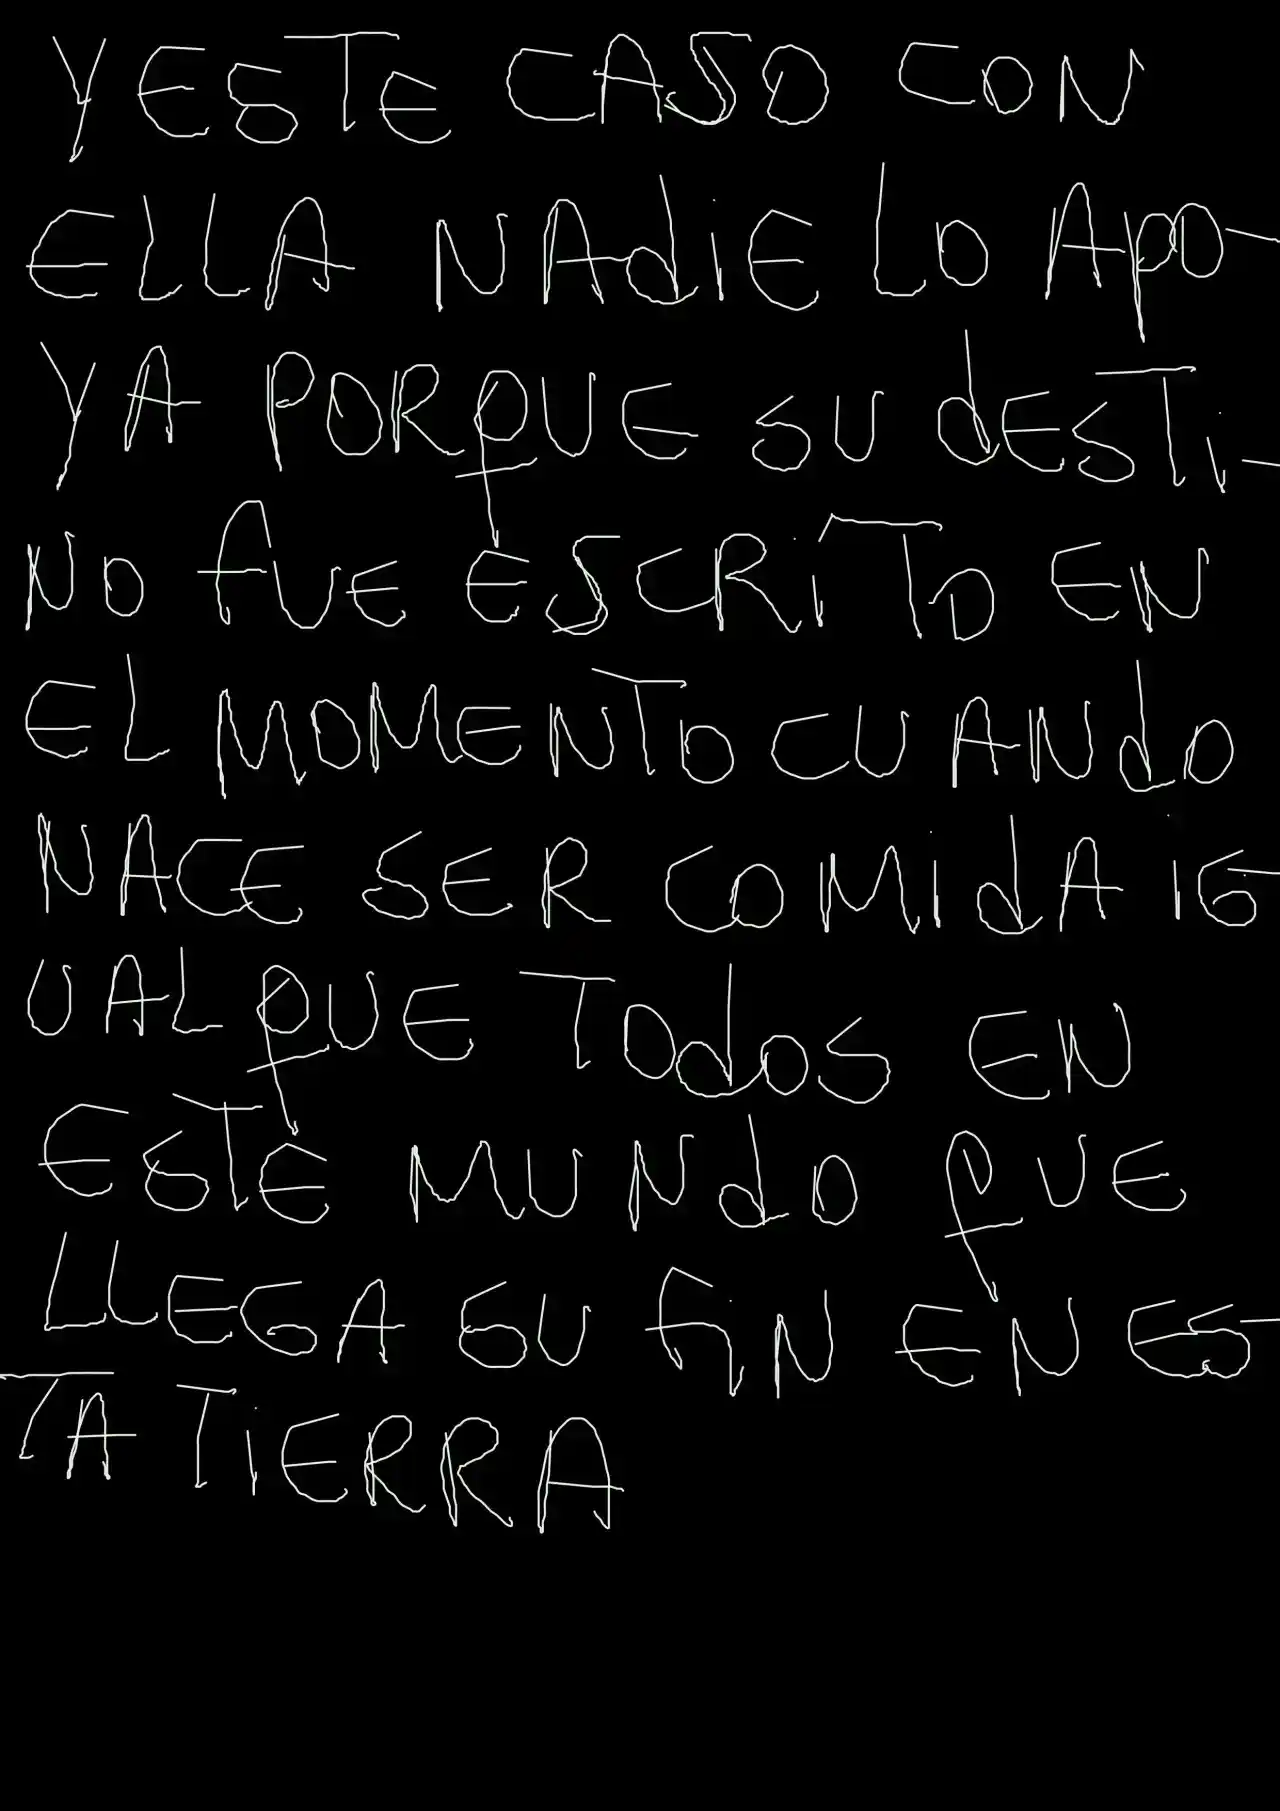 YESTE CASO CON
ELLA NAdiE LO APO-
YA PORQUE SU dESTi-
NO fUE ESCRiTO EN
EL MOMENTO CUANdO
NACE SER COMidA iG-
UAL QUE TOdOS EN
ESTE MUNdO QUE
LLEGA SU fiN EN ES-
TA TiERRA